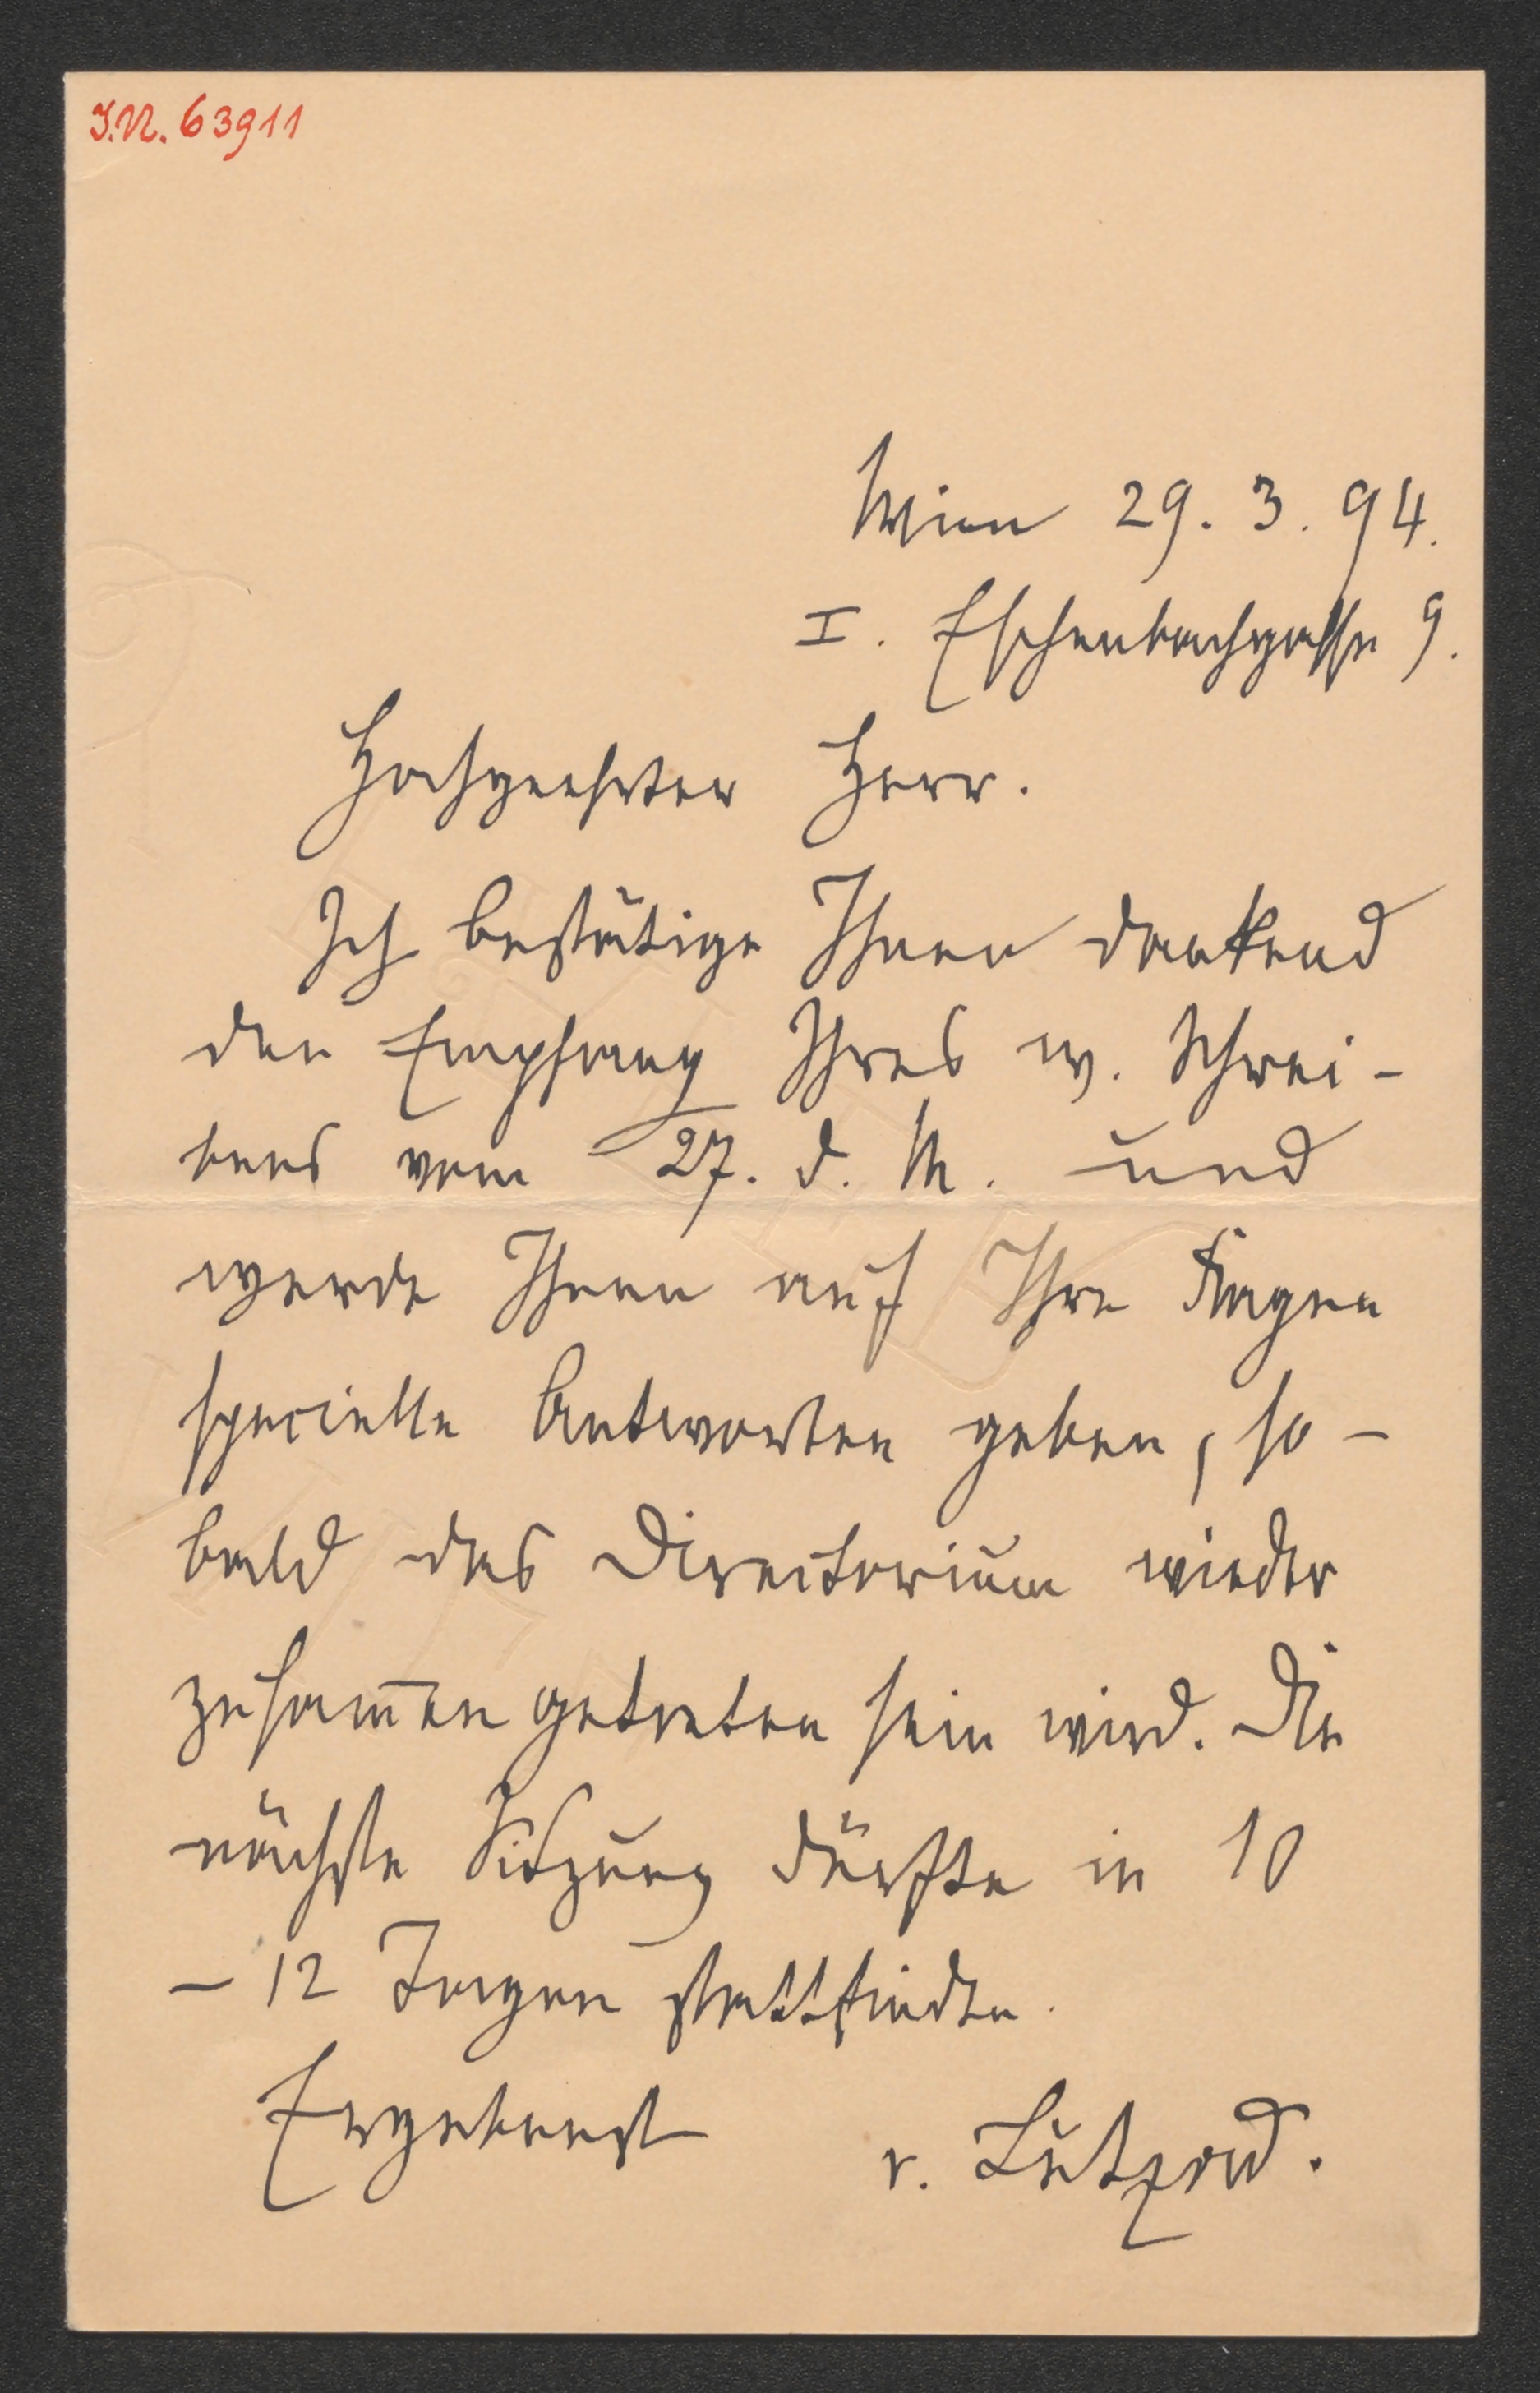 I.N. 63911
Wien 29. 3. 94.
I. Eschenbachgasse 9.
Hochgeehrter Herr.
Ich bestätige Ihnen dankend
den Empfang Ihres w. Schrei-
bens vom 27. d. M. und
werde Ihnen auf Ihre Fragen
specielle Antworten geben, so-
bald das Directorium wieder
zusam̅en getreten sein wird. Die
nächste Sitzung dürfte in 10
- 12 Tagen stattfinden.
Ergebenst
v. Lützow.